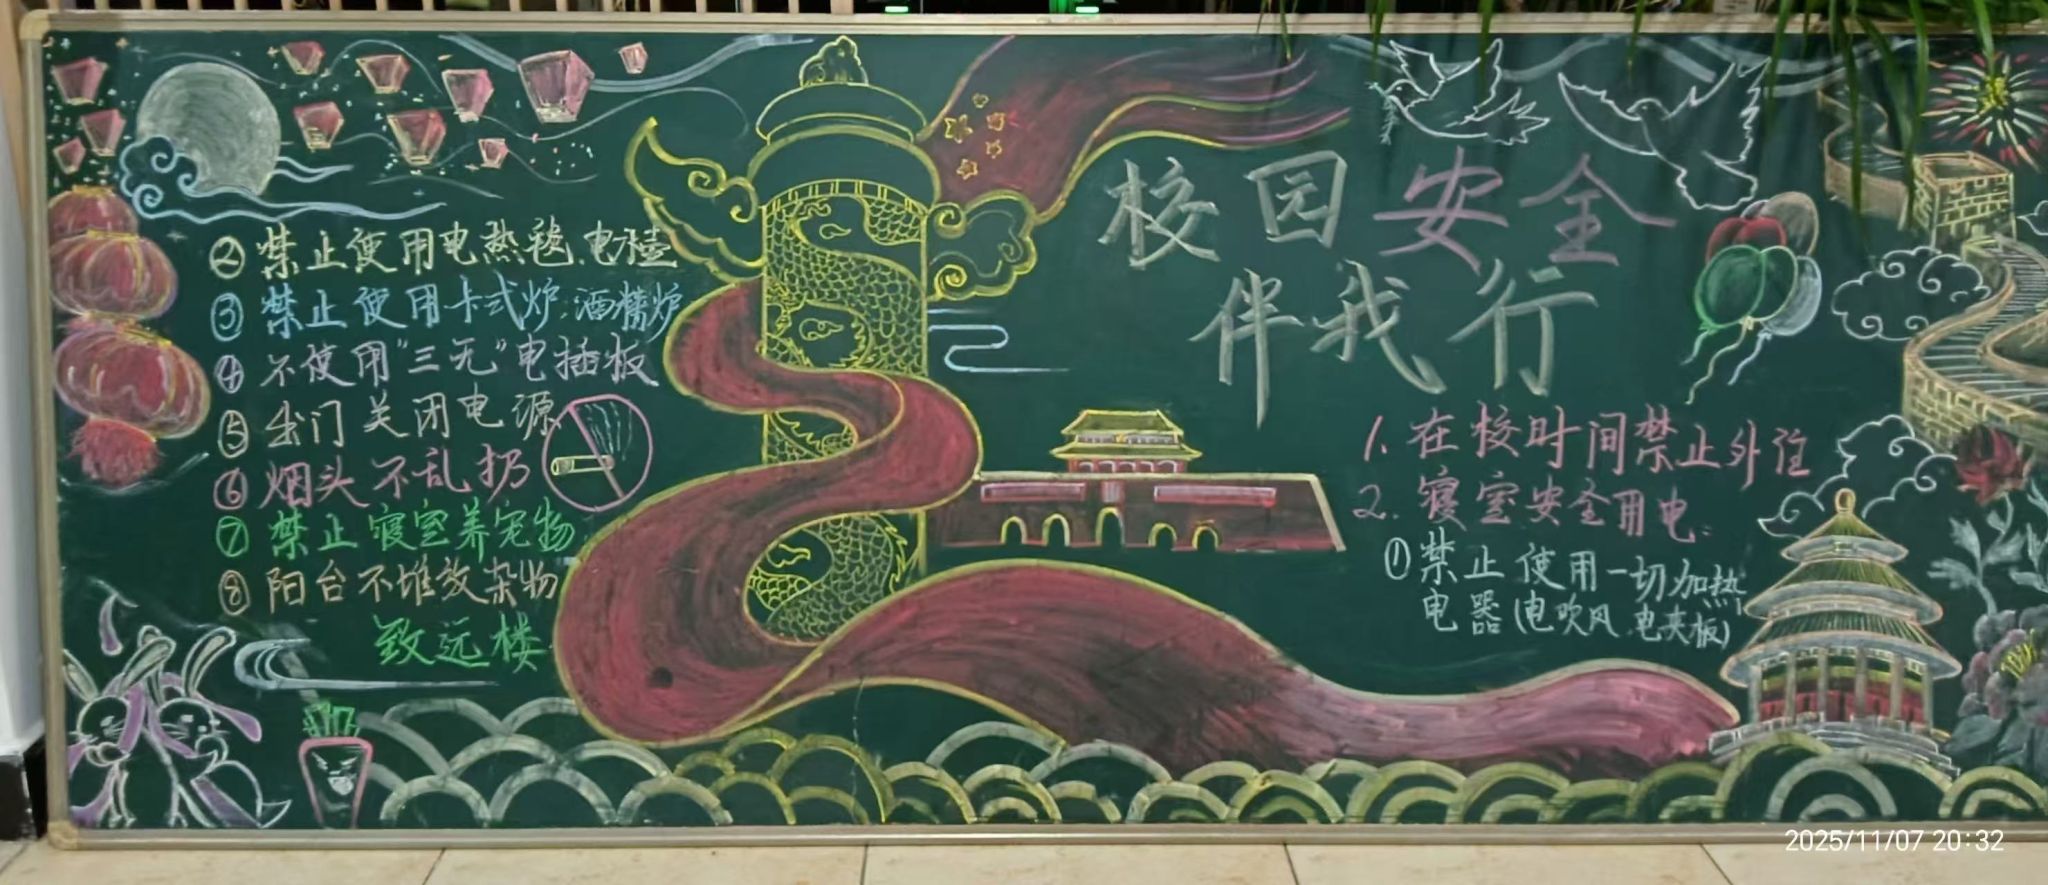 校园安全
伴我行
1. 在校时间禁止外住
2. 寝室安全用电:
①禁止使用一切加热
电器(电吹风、电夹板)
②禁止使用电热毯、电水壶
③禁止使用卡式炉、酒精炉
④不使用“三无”电插板
⑤出门关闭电源
⑥烟头不乱扔
⑦禁止寝室养宠物
⑧阳台不堆放杂物
致远楼
2025/11/07 20:32